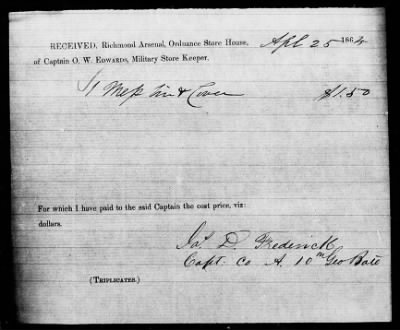 RECEIVED, Richmond Arsenal, Ordnance Store House, Apl 25 1864
of Captain O. W. EDWARDS, Military Store Keeper.
1 Mess tin & Cover $1.50
For which I have paid to the said Captain the cost price, viz:
dollars.
Jas. D. Frederick
Capt. Co A. 10th Geo Batt
(TRIPLICATES.)